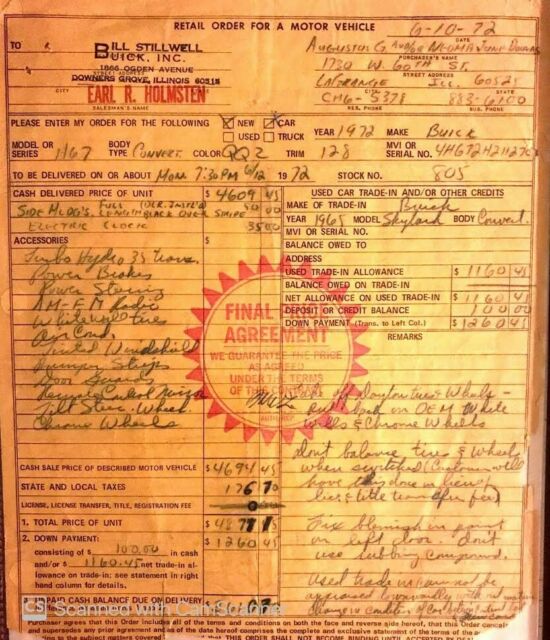 RETAIL ORDER FOR A MOTOR VEHICLE 6-10-72
DATE
TO BILL STILLWELL BUICK, INC.
1866 OGDEN AVENUE
STREET ADDRESS
DOWNERS GROVE, ILLINOIS 60515
CITY STATE
EARL R. HOLMSTEN
SALESMAN'S NAME
Augustus G. and/or Neoma June
PURCHASER'S NAME
1730 W. 60th St.
STREET ADDRESS
LaGrange Ill. 60525
CITY STATE
CH6-5378 883-6100
RES. PHONE BUS. PHONE
PLEASE ENTER MY ORDER FOR THE FOLLOWING NEW CAR
USED TRUCK
YEAR 1972 MAKE Buick
MODEL OR SERIES H67 BODY TYPE Convert. COLOR QQ2 TRIM 128 MVI OR SERIAL NO.
TO BE DELIVERED ON OR ABOUT Mon 7:30PM 6/12 1972 STOCK NO. 805
CASH DELIVERED PRICE OF UNIT $ 4609 45
Side Mldg's. Full Length (DLR. INSTL'D) Black Over Stripe 50 00
Electric Clock 35 00
ACCESSORIES $
Turbo Hydro 35 Trans.
Power Brakes
Power Steering
AM-FM Radio
Whitewall tires
Air Cond.
Tinted Windshield
Bumper Strips
Door Guards
Remote Control Mirror
Tilt Steer. Wheel
Chrome Wheels
CASH SALE PRICE OF DESCRIBED MOTOR VEHICLE $ 4694 45
STATE AND LOCAL TAXES 176 70
LICENSE, LICENSE TRANSFER, TITLE, REGISTRATION FEE 0
1. TOTAL PRICE $ 4871 15
2. DOWN PAYMENT: $ 1260 45
consisting of $ 100.00 in cash
and/or $ 1160.45 net trade-in al-
lowance on trade-in: see statement in right
hand column for details.
CASH BALANCE DUE ON DELIVERY
USED CAR TRADE-IN AND/OR OTHER CREDITS
MAKE OF TRADE-IN Buick
YEAR 1965 MODEL Skylark BODY Convert.
MVI OR SERIAL NO.
BALANCE OWED TO
ADDRESS
USED TRADE-IN ALLOWANCE $ 1160 45
BALANCE OWED ON TRADE-IN
NET ALLOWANCE ON USED TRADE-IN $ 1160 45
DEPOSIT OR CREDIT BALANCE 100 00
DOWN PAYMENT (Trans. to Left Col.) $ 1260 45
REMARKS
FINAL PRICE AGREEMENT
WE GUARANTEE THE PRICE
AS AGREED
UNDER THE TERMS
OF THIS
Take off Dayton tires & Wheels -
put back on OEM White
Walls & Chrome Wheels
don't balance tires & Wheels
when switched (Customer will
have this done in lieu of
lic. & title transfer fee)
Fix blemish in paint
on left door. don't
use rubbing compound.
Used trade in may not be
reappraised
change in condition of
Scanned with CamScanner
conditions on both the face and reverse side hereof, that this Order cancels
and supersedes any prior agreement and as of the date hereof comprises the complete and exclusive statement of the terms of the
THAT THIS ORDER SHALL NOT BECOME BINDING UNTIL ACCEPTED BY